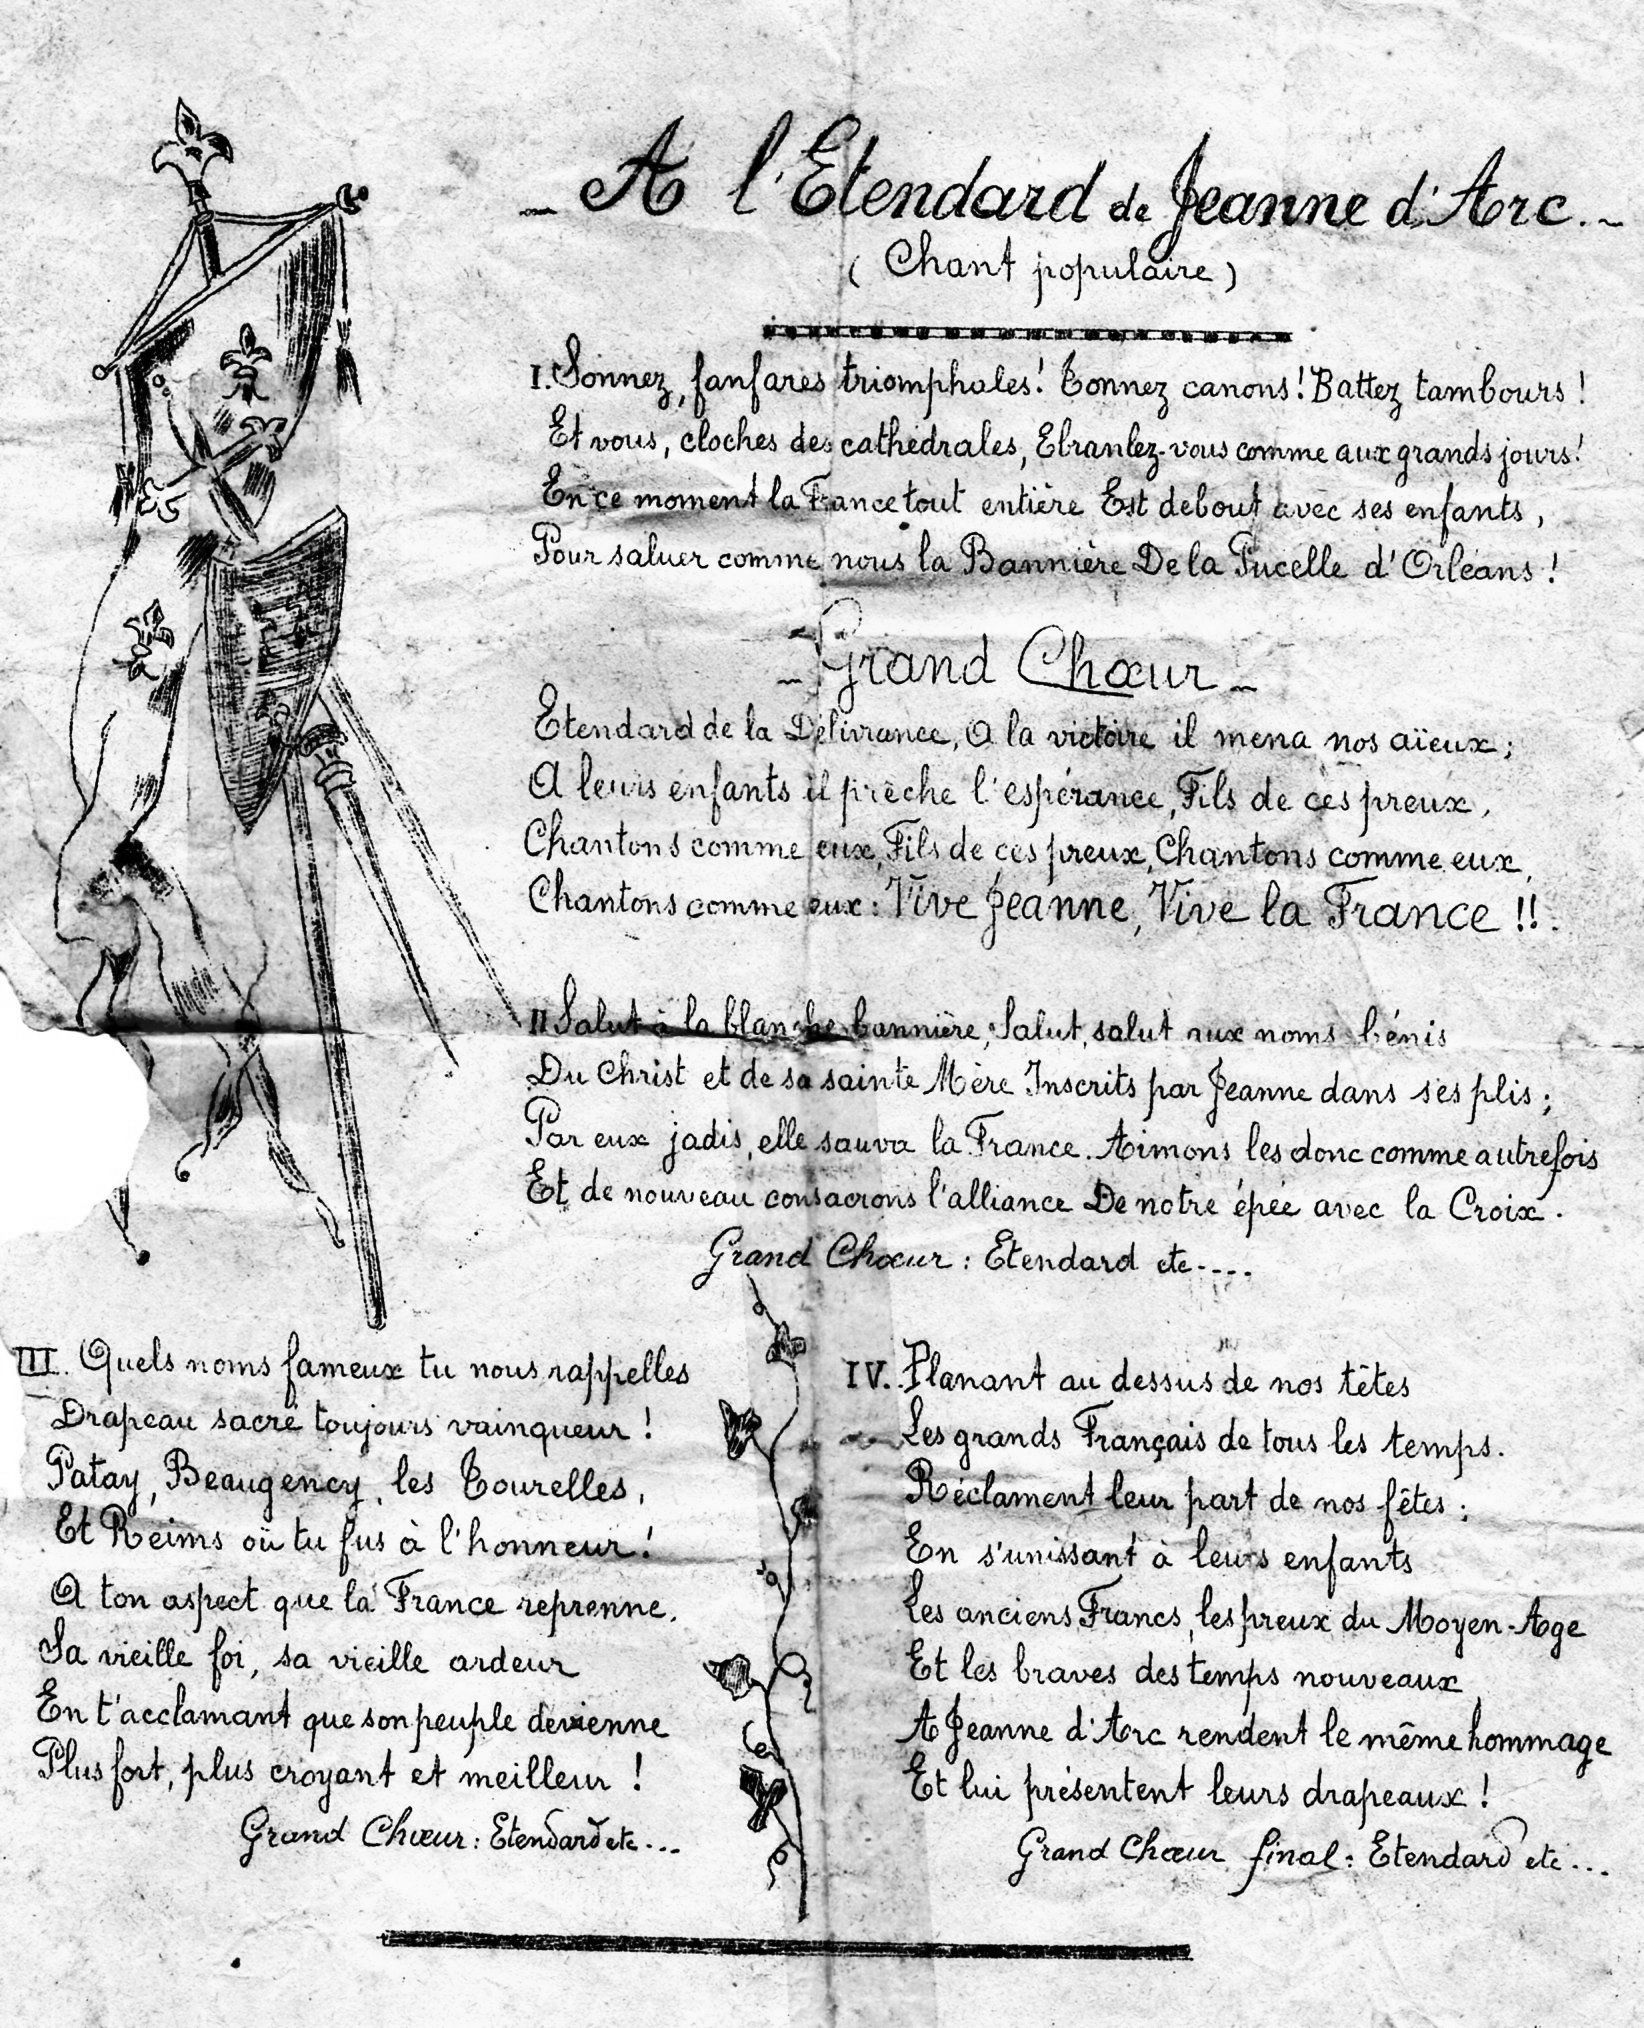 A l'Etendard de Jeanne d'Arc.
(Chant populaire)
I. Sonnez, fanfares triomphales! Tonnez canons! Battez tambours!
Et vous, cloches des cathédrales, Ebranlez-vous comme aux grands jours!
En ce moment la France tout entière Est debout avec ses enfants,
Pour saluer comme nous la Bannière De la Pucelle d'Orléans!
Grand Chœur
Etendard de la Délivrance, A la victoire il mena nos aïeux;
A leurs enfants il prèche l'espérance, Fils de ces preux,
Chantons comme eux, Fils de ces preux, Chantons comme eux,
Chantons comme eux: Vive Jeanne, Vive la France!!.
II Salut à la blanche bannière, Salut, salut aux noms bénis
Du Christ et de sa sainte Mère Inscrits par Jeanne dans ses plis;
Par eux jadis, elle sauva la France. Aimons les donc comme autrefois
Et de nouveau consacrons l'alliance De notre épée avec la Croix.
Grand Chœur: Etendard etc....
III. Quels noms fameux tu nous rappelles
Drapeau sacré toujours vainqueur!
Patay, Beaugency, les Tourelles,
Et Reims où tu fus à l'honneur!
A ton aspect que la France reprenne,
Sa vieille foi, sa vieille ardeur
En t'acclamant que son peuple devienne
Plus fort, plus croyant et meilleur!
Grand Chœur: Etendard etc...
IV. Planant au dessus de nos têtes
Les grands Français de tous les temps.
Réclament leur part de nos fêtes;
En s'unissant à leurs enfants
Les anciens Francs, les preux du Moyen-Age
Et les braves des temps nouveaux
A Jeanne d'Arc rendent le même hommage
Et lui présentent leurs drapeaux!
Grand Chœur final: Etendard etc...